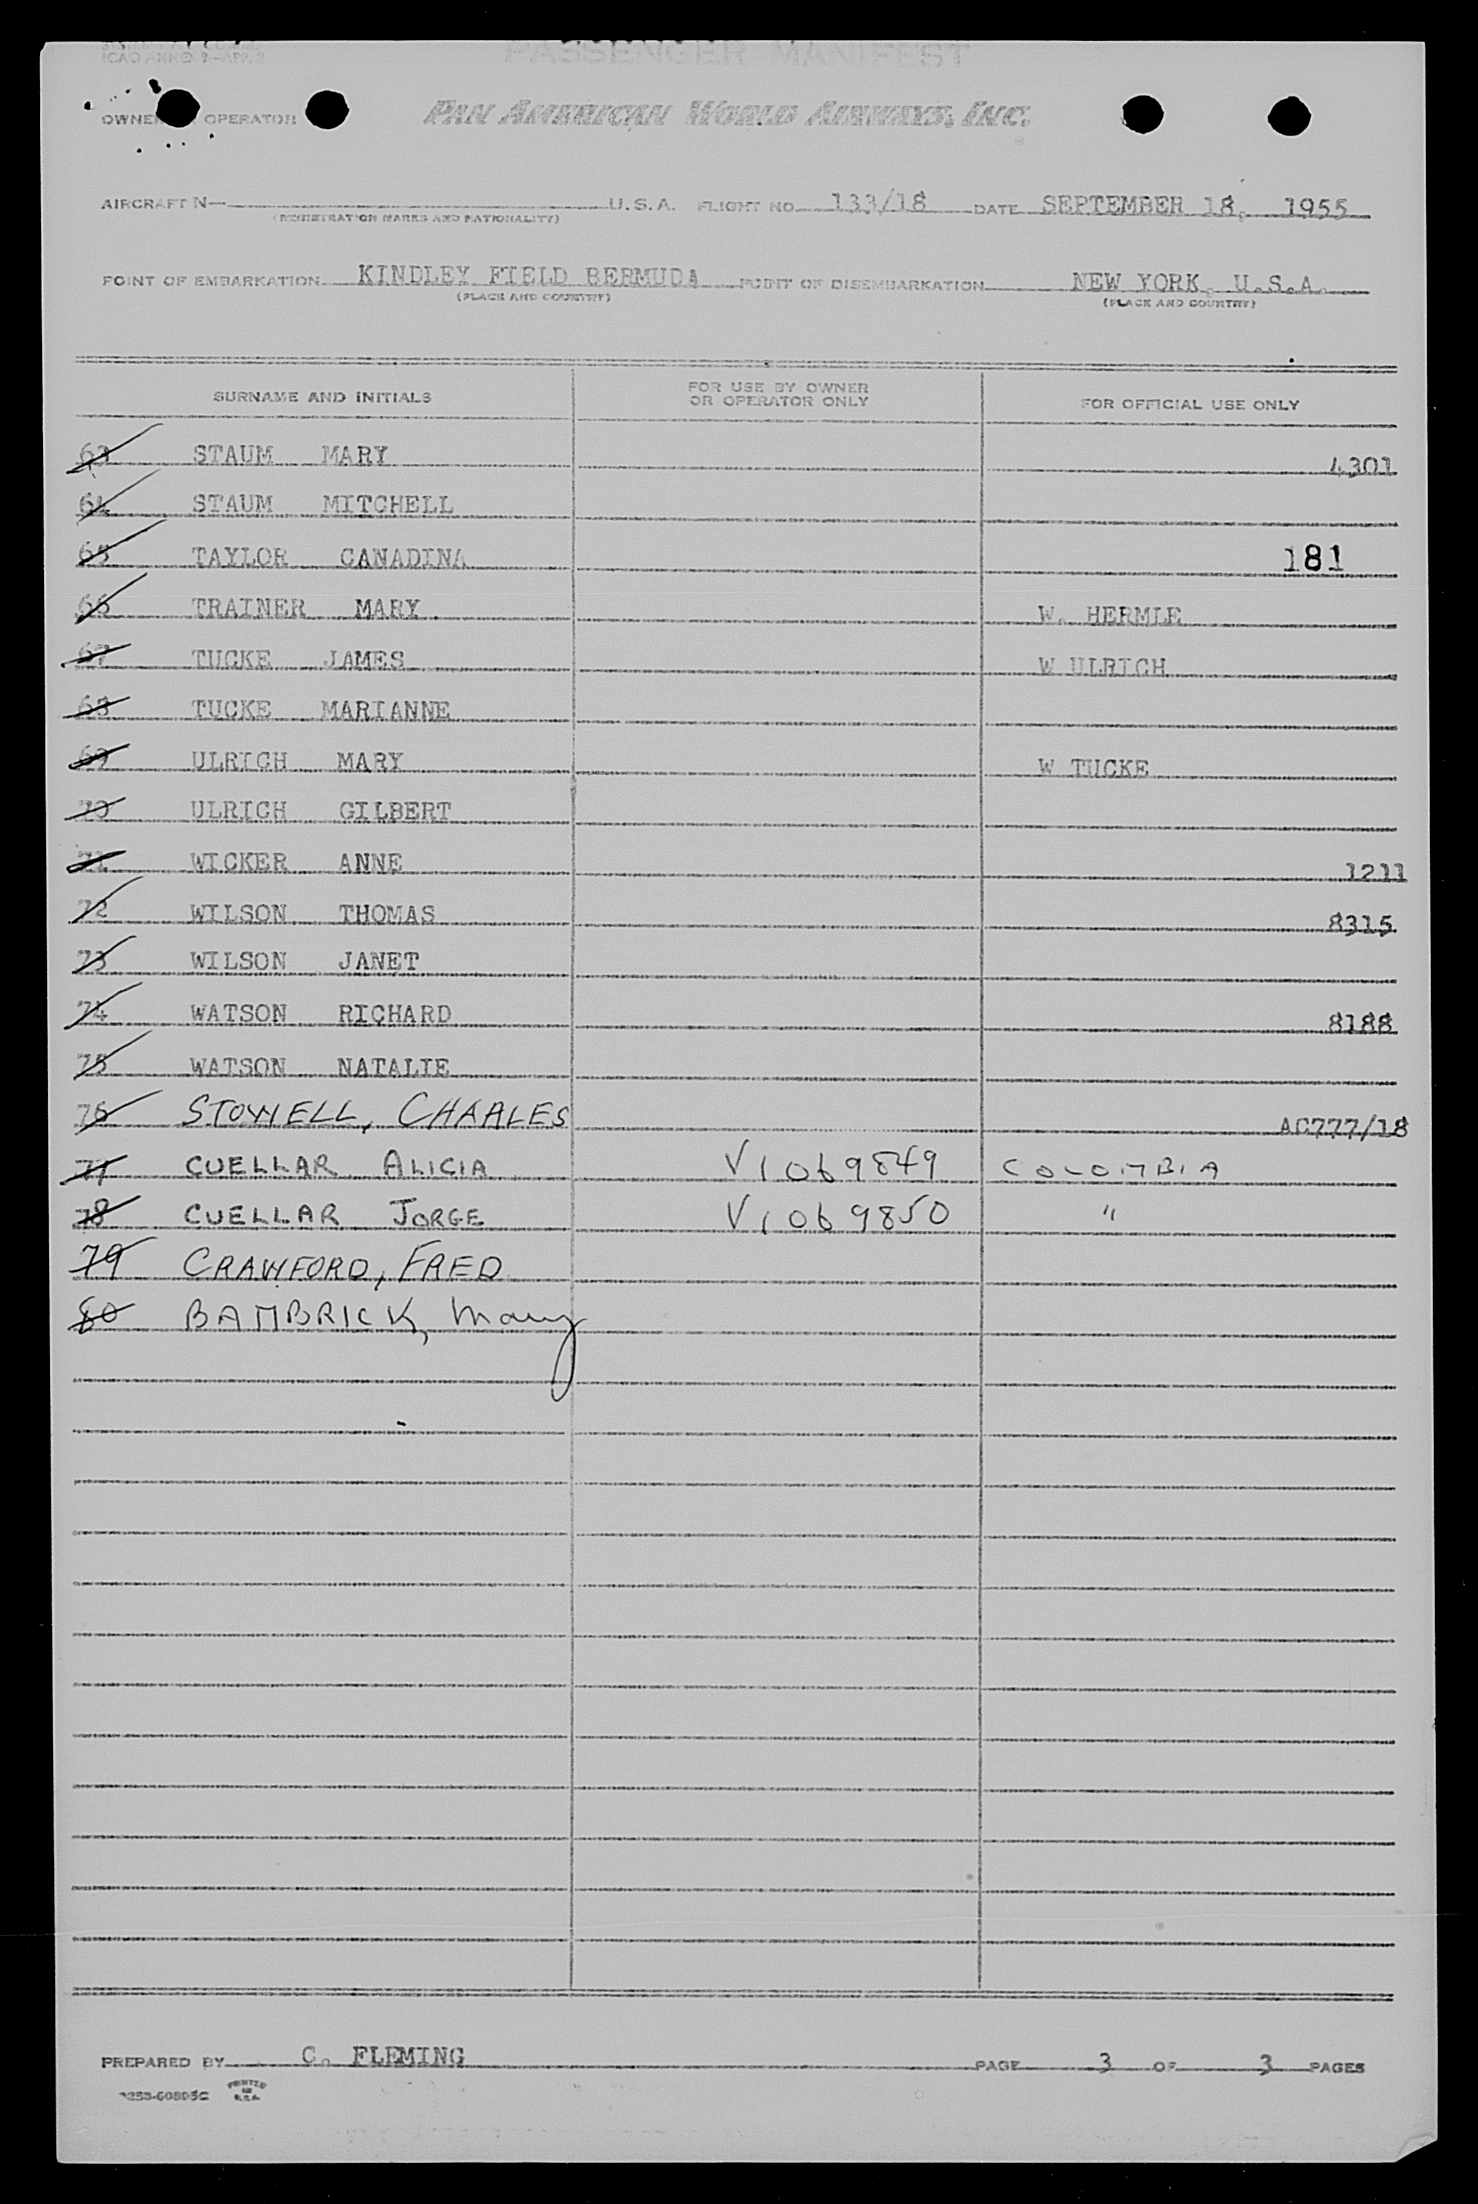 PASSENGER MANIFEST
OWNER OPERATOR PAN AMERICAN WORLD AIRWAYS, INC.
AIRCRAFT N— U.S.A. FLIGHT NO. 133/18 DATE SEPTEMBER 18, 1955
(REGISTRATION MARKS AND NATIONALITY)
POINT OF EMBARKATION KINDLEY FIELD BERMUDA POINT OF DISEMBARKATION NEW YORK, U.S.A.
(PLACE AND COUNTRY) (PLACE AND COUNTRY)
SURNAME AND INITIALS FOR USE BY OWNER OR OPERATOR ONLY FOR OFFICIAL USE ONLY
63 STAUM MARY 4301
64 STAUM MITCHELL
65 TAYLOR CANADINA 181
66 TRAINER MARY W. HERMLE
67 TUCKE JAMES W ULRICH
68 TUCKE MARIANNE
69 ULRICH MARY W TUCKE
70 ULRICH GILBERT
71 WICKER ANNE 1211
72 WILSON THOMAS 8315
73 WILSON JANET
74 WATSON RICHARD 8188
75 WATSON NATALIE
76 STOWELL, CHARLES AC777/18
77 CUELLAR ALICIA V1069849 COLOMBIA
78 CUELLAR JORGE V1069850 "
79 CRAWFORD, FRED
80 BAMBRICK, Mary
PREPARED BY C. FLEMING PAGE 3 OF 3 PAGES
PRINTED IN U.S.A.